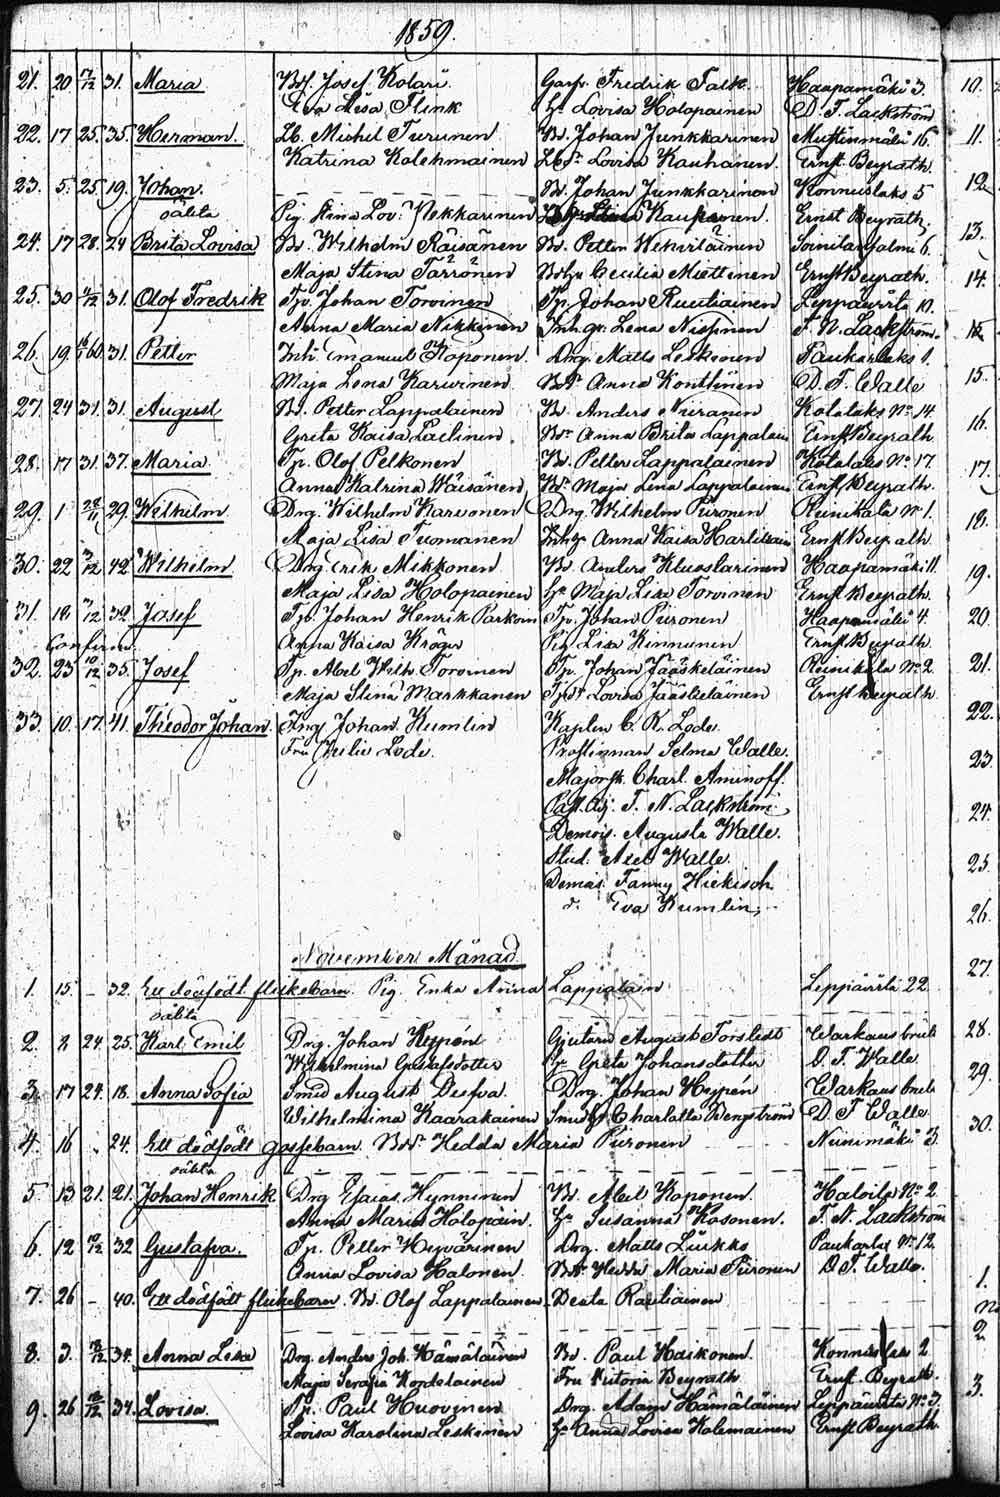 1859.
21. 20 17/12 31. Maria Bdf. Josef Kolari Garfv. Fredrik Falk Haapamäki 3.
Eva Lisa Flink Hu Lovisa Holopainen D. F. Lackström
22. 17 25. 35. Herman. Lb. Michel Turunen Bd. Johan Junkkarinen Mustinmäki 16.
Katrina Kolehmainen Lbdr. Lovisa Kauhanen. Ernst Beyrath.
23. 5. 25 19. Johan. Bd. Johan Junkkarinen Konnuslaks 5
oäkta Pig. Stina Lov: Pekkarinen Kauppinen. Ernst Beyrath,
24. 17 28. 24 Brita Lovisa Bd. Wilhelm Räisänen Bd. Petter Wehviläinen Soinilansalmi 6.
Maja Stina Tarvonen Cecilia Miettinen Ernst Beyrath.
25. 30 4/12 31. Olof Fredrik Tp. Johan Torvinen Tp. Johan Ruutiainen Leppävirta 10.
Anna Maria Nikkinen Inh. gr. Lena Nissinen F. N. Lackström.
26. 19. 60. 31. Petter Inh. Emanuel Koponen. Drg. Matts Leskinen Paukarlaks 1.
Maja Lena Karvinen. Bdr Anna Konttinen D. F. Walle
27. 24 31. 31. August Bd. Petter Lappalainen Bd. Anders Niiranen Kotalaks No 14.
Greta Kaisa Laitinen. Bdr Anna Brita Lappalain Ernst Beyrath.
28. 17 31. 37. Maria. Tp. Olof Pelkonen Bd. Petter Lappalainen Kotalaks No 17.
Anna Katrina Wäisänen Bdr Maja Lena Lappalainen Ernst Beyrath.
29. 1 28/11 29. Wilhelm Drg. Wilhelm Karvonen Drg. Wilhelm Piironen Reinikkala No 1.
Maja Lisa Tuomainen Anna Kaisa Harlikain Ernst Beyrath
30. 22 3/12 42. Wilhelm Drg Erik Mikkonen Bd. Anders Haapamäki 11.
Maja Lisa Holopainen Hu Maja Lisa Torvinen Ernst Beyrath.
31. 18. 3/12 32. Josef Tp. Johan Henrik Parkom Tp. Johan Piironen Haapamäki 4.
Confirm. Anna Kaisa Kröger Pig Lisa Kinnunen Ernst Beyrath
32. 23 10/12 35. Josef Tp. Abel Wilh. Torvinen Tp. Johan Jääskeläinen Reinikkala No 2.
Maja Stina Markkanen Lovisa Jääskeläinen Ernst Beyrath.
33. 10. 17. 41. Theodor Johan. Ing Johan Kumlin Kaplan C. R. Lode.
Fru Julie Lode. Prostinnan Selma Walle.
Majorsk. Charl. Aminoff.
Past. Adj: F. N. Lackström
Demois. Augusta Walle.
Stud. Axel Walle.
Demois. Fanny Hickisch
d. Eva Kumlin.
November Månad.
1. 15. – 32. Ett dödfödt flickebarn. Pig. Enka Anna Lappalain Leppävirta 22.
oäkta
2. 2 24. 25. Karl Emil Drg. Johan Heppén Gjutaren August Forstedt Warkaus bruk
Wilhelmina Gustafsdotter Hu Greta Johansdotter D. F. Walle.
3. 17 24. 18. Anna Sofia Smed August Desfva. Drg. Johan Heppén Warkaus bruk
Wilhelmina Kaarakainen Charlotta Bengström D. F. Walle.
4. 16 „ 24. Ett dödfödt gossebarn. Bdr. Hedda Maria Piironen Niinimäki 3.
oäkta
5. 13 21. 21. Johan Henrik Drg Esaias Hynninen Bd. Abel Koponen. Hatoila No 2.
Anna Maria Holopain. Hu Susanna Kosonen. F. N. Lackström
6. 12 10/12 32 Gustafva. Tp. Petter Hyvärinen Drg. Matts Luikko Paukarlax No 12.
Anna Lovisa Halonen. Bdr Hedda Maria Piironen D. F. Walle.
7. 26 – 40. Ett dödfödt flickebarn. Bd. Olof Lappalainen Beata Rautiainen
8. 3. 18/12 34. Anna Lisa Drg. Anders Joh. Hämäläinen Bd. Paul Haikonen. Konnuslaks 2
Maja Serafia Kordelainen Fru Victoria Beyrath Ernst Beyrath.
9. 26 18/12 34. Lovisa. Tp. Paul Huovinen Drg. Adam Hämäläinen Leppävirta No 3.
Lovisa Karolina Leskinen Hu Anna Lovisa Kolemainen Ernst Beyrath.
10.
11.
12.
13.
14.
15.
16.
17.
18.
19.
20.
21.
22.
23.
24.
25.
26.
27.
28.
29.
30.
1.
2
3.